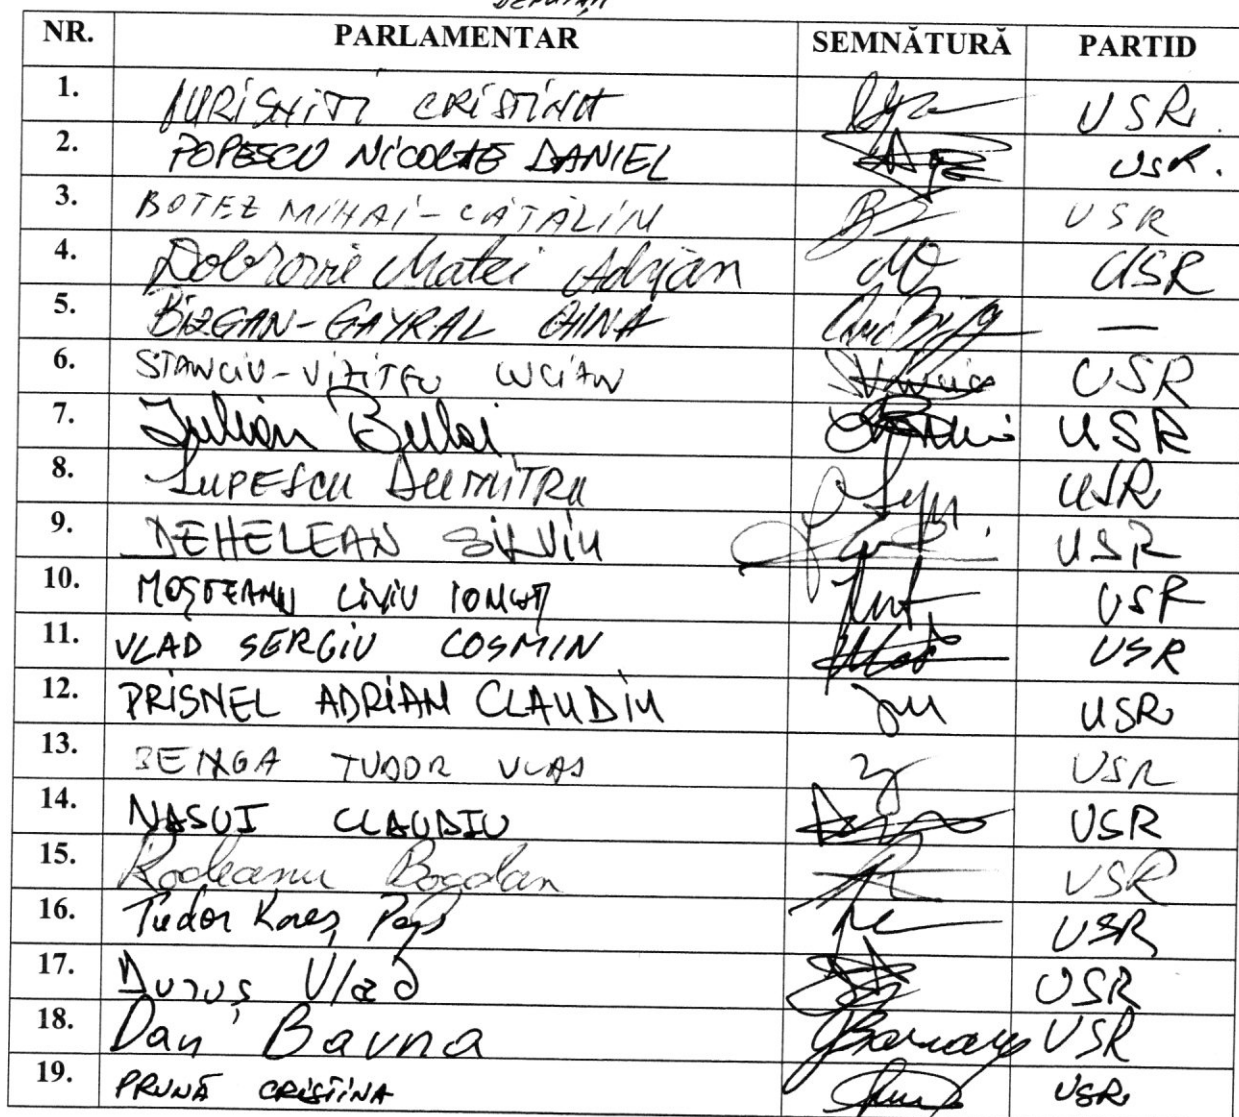 DEPUTAȚI
NR. PARLAMENTAR SEMNĂTURĂ PARTID
1. IURIȘNIȚI CRISTINA USR
2. POPESCU NICOLAE DANIEL USR.
3. BOTEZ MIHAI-CĂTĂLIN USR
4. Dobrovie Matei Adrian USR
5. BIZGAN-GAYRAL OANA —
6. STANCIU-VIZITEU LUCIAN USR
7. Iulian Bulai USR
8. LUPESCU DUMITRU USR
9. DEHELEAN SILVIU USR
10. MOȘTEANU LIVIU IONUȚ USR
11. VLAD SERGIU COSMIN USR
12. PRISNEL ADRIAN CLAUDIU USR
13. BENGA TUDOR VLAD USR
14. NASUI CLAUDIU USR
15. Rodeanu Bogdan USR
16. Tudor Pop USR
17. Duruș Vlad USR
18. Dan Barna USR
19. PRUNĂ CRISTINA USR